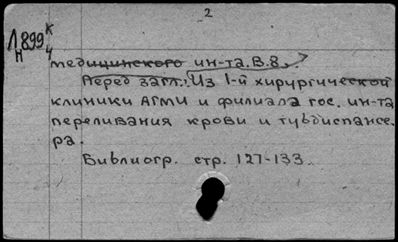 2
Л899 к
н 4
медицинского ин-та. В.8.
Перед загл.: Из 1-й хирургической
клиники АГМИ и филиала гос. ин-та
переливания крови и тубдиспансе.
ра.
Библиогр. стр. 127-133.